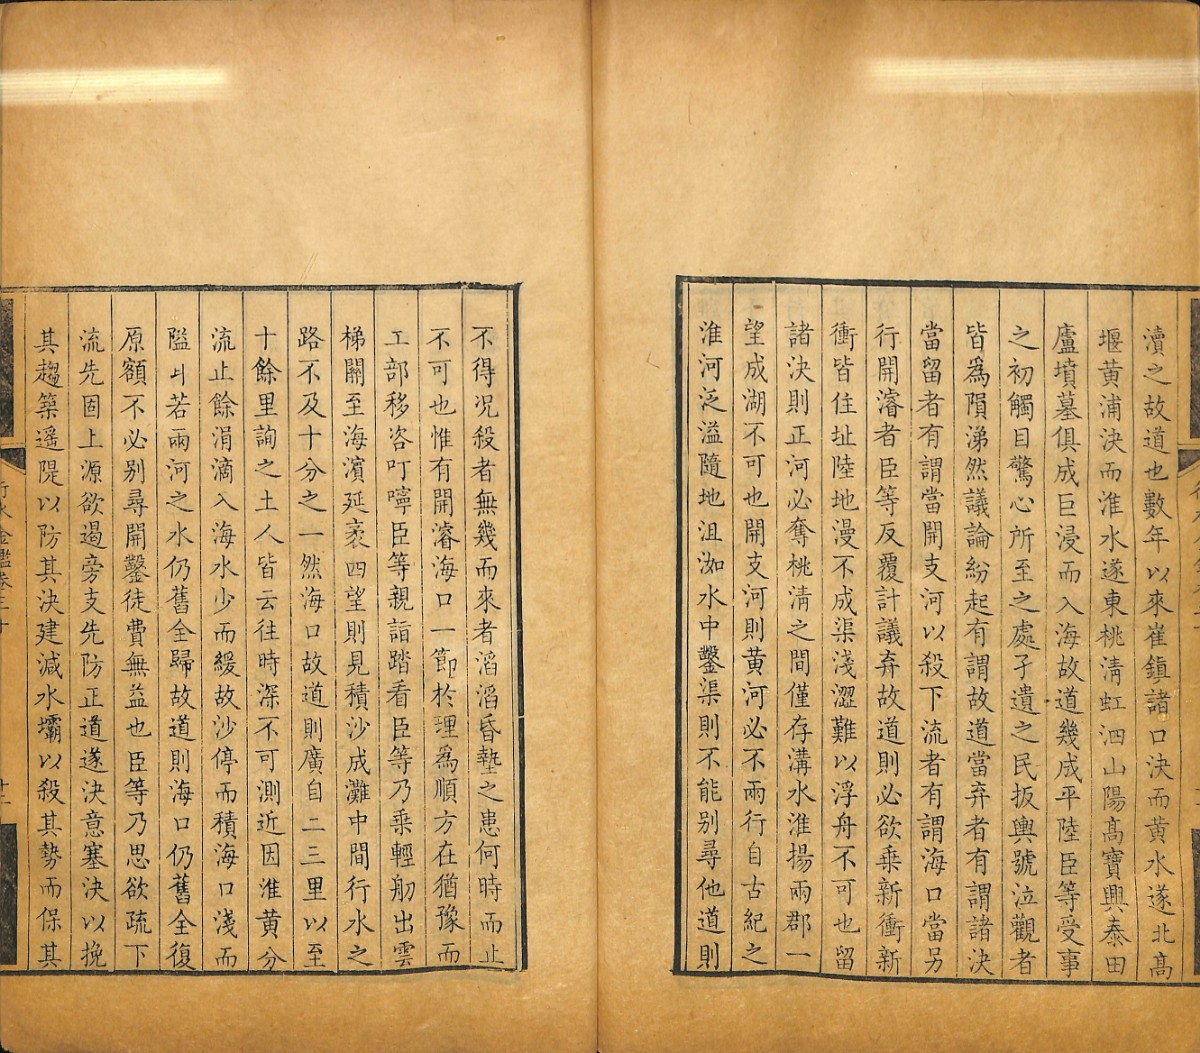 瀆之故道也數年以來崔鎮諸口決而黄水遂北髙
堰黄浦決而淮水遂東桃清虹泗山陽髙寶興泰田
廬墳墓俱成巨浸而入海故道幾成平陸臣等受事
之初觸目驚心所至之處孑遺之民扳輿號泣觀者
皆爲隕涕然議論紛起有謂故道當弃者有謂諸決
當留者有謂當開支河以殺下流者有謂海口當另
行開濬者臣等反覆計議弃故道則必欲乗新衝新
衝皆住址陸地漫不成渠淺澀難以浮舟不可也留
諸決則正河必奪桃清之間僅存溝水淮揚兩郡一
望成湖不可也開支河則黄河必不兩行自古紀之
淮河泛溢隨地沮洳水中鑿渠則不能别尋他道則
不得况殺者無幾而來者滔滔昏墊之患何時而止
不可也惟有開濬海口一節於理爲順方在猶豫而
工部移咨叮嚀臣等親詣踏看臣等乃乗輕舠出雲
梯關至海濱延袤四望則見積沙成灘中間行水之
路不及十分之一然海口故道則廣自二三里以至
十餘里詢之土人皆云往時深不可測近因淮黄分
流止餘涓滴入海水少而緩故沙停而積海口淺而
隘丩若兩河之水仍舊全歸故道則海口仍舊全復
原額不必别尋開鑿徒費無益也臣等乃思欲疏下
流先固上源欲遏旁支先防正道遂決意塞決以挽
其趨築遥隄以防其決建減水壩以殺其勢而保其
行水金鑑卷三十